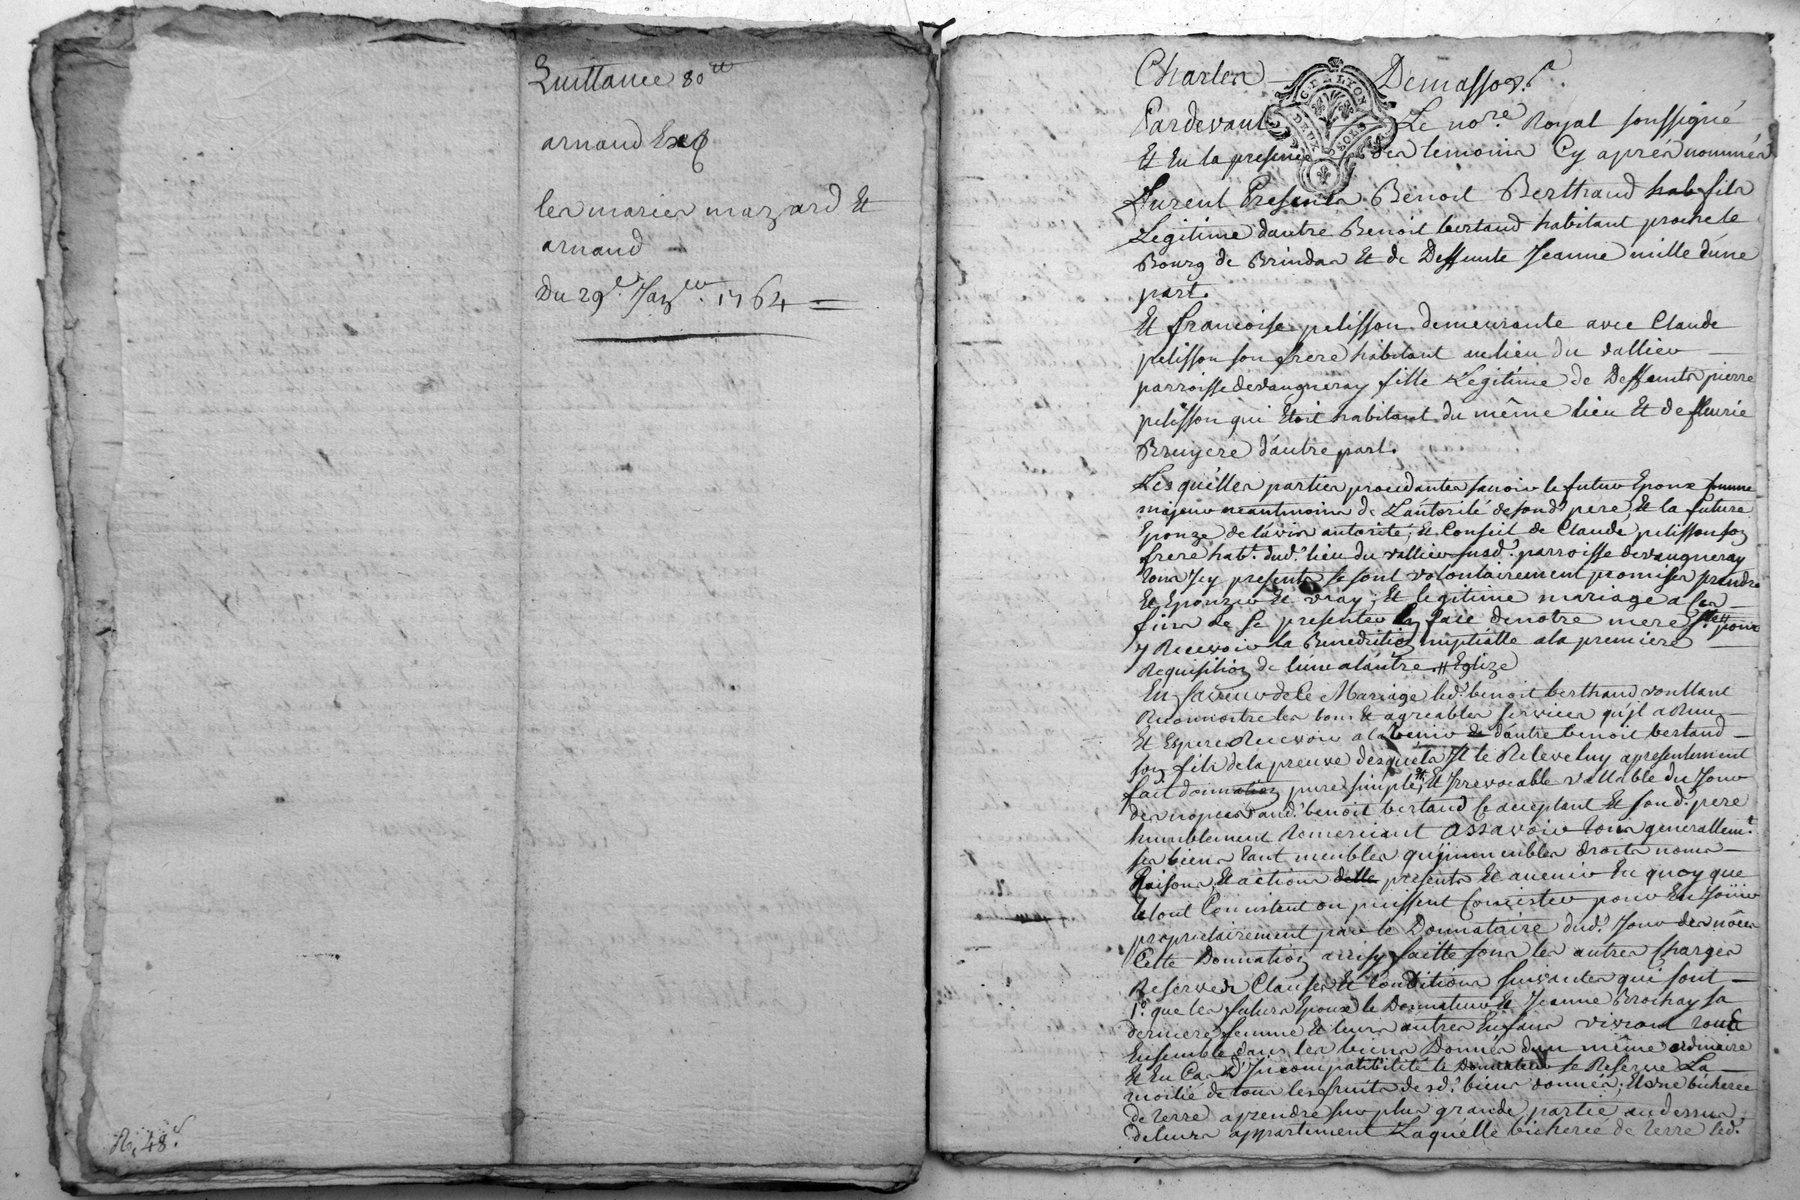 Quittance 80ᵗᵗ
arnaud
les mariés mazard Et
arnaud
Du 29ᵉ. Janᵉʳ. 1764
R. 48ˢ.
Charles Demasso
G. DE LYON
DEUX SOLS
Pardevant Le noʳᵉ Royal soussigné
Et En la presence des temoins Cy aprés nommés
furent Presents Benoit Berttrand fils
Legitime dautre Benoit bertand habitant proche le
Bourg de Brindas Et de Deffunte Jeanne mille dúne
part.
Et francoise pelisson demeurante avec Claude
pelisson son frere habitant au lieu du vallier
parroisse devaugneray fille Legitime de Deffunts pierre
pelisson qui Etoit habitant du même lieu Et de fleurie
Bruyere dáutre part.
Lesquélles parties procedantes savoir le futur Epoux comme
majeur neantmoins de Láutorité desond. pere, Et la future
Epouze de lávis autorité, Et Conseil de Claude pelisson son
frere habᵗ. dud. lieu du vallier susd. parroisse devaugneray
tous Jcy presents se sont volontairement promises prendre
Et Epouzer En vray, Et legitime mariage a ses
fins de se presenter En face denotre mere Sᵗᵉ # pour
y Recevoir la Benediction nuptialle ala premiere
Requisition de lúne aláutre # Eglize
En faveur de Ce Mariage led. benoit berthrand voullant
Reconnoitre les bons Et agreables services qúil a Reçu
Et Espere Recevoir a lávenir de dáutre benoit bertand
son fils dela preuve désquéls Jl le Releve luy apresentement
fait donnation pure, simple, Et Jrrevocable vallable du Jour
des nopces aud. benoit bertand Ce acceptant Et sond. pere
humblement Remerciant assavoir tous generallemᵗ.
ses biens tant meubles qújmmeubles droits noms
Raisons, Et actions presents Et avenir En quoy que
letout Consistent ou puissent Consister pour En Joüir
proprietairement par le Donnataire dud. Jour des nôces
Cette Donnation ainsy faitte sous les autres Charges
Reserves Clauses Et Conditions suivantes qui sont
1º. que les futurs Epoux le Donnateur Et Jeanne Brochay sa
derniere femme Et leurs autres Enfans vivront tous
Ensemble dans les biens Donnés dun même ordinaire
Et En Cas d'Jncompatibilité le Donnateur se Reserve La
moitié de tous les fruits desd. biens donnés, Et une bicherée
de terre aprendre sur plus grande partie audessus
deleurs appartement Laquélle bicherée de terre led.